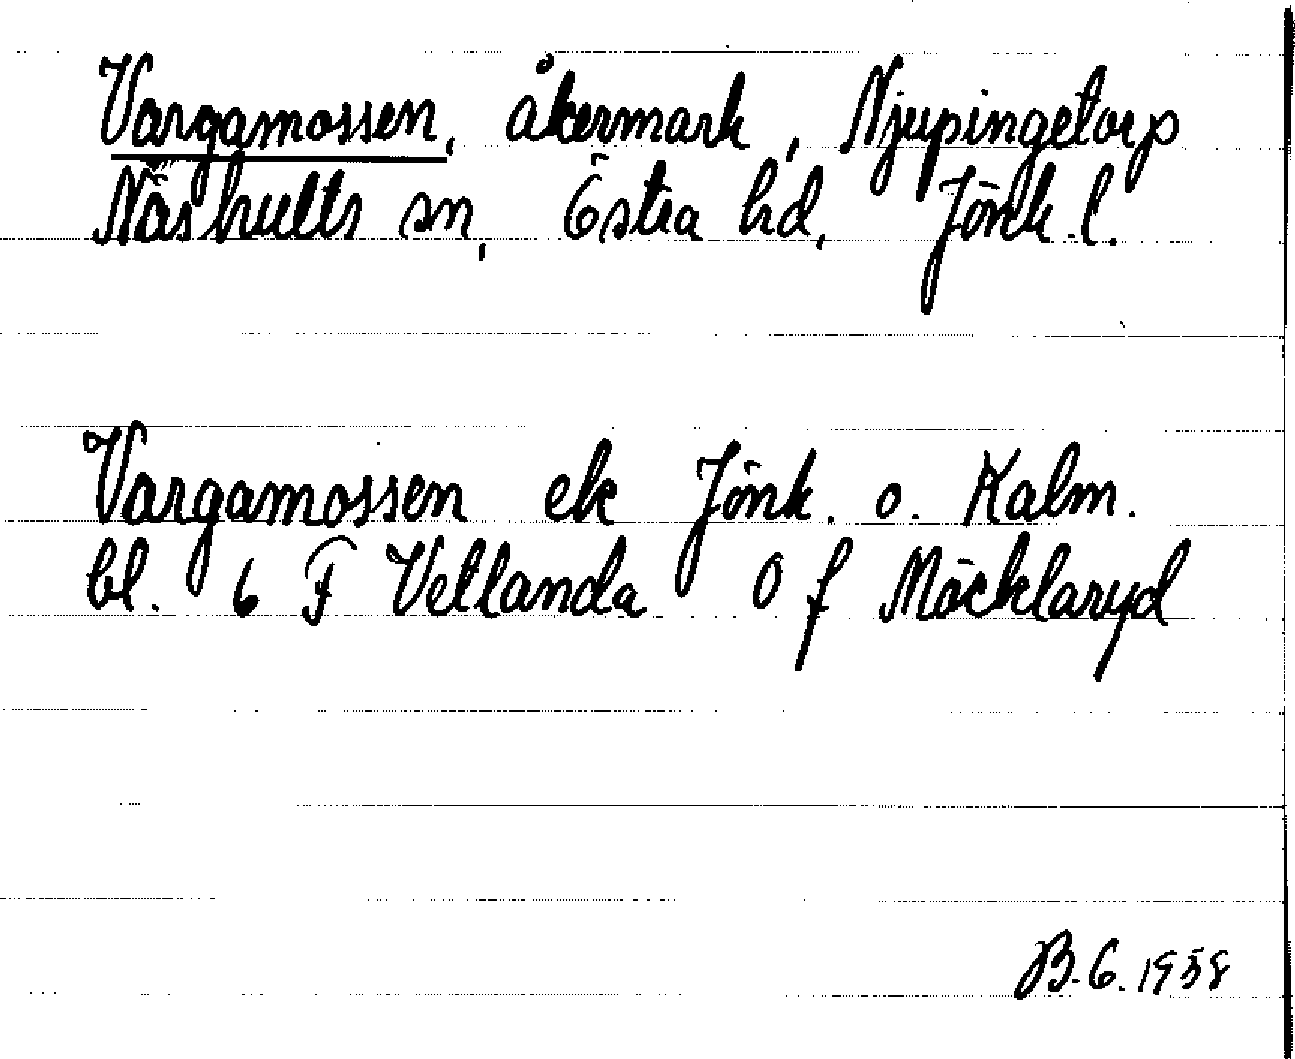 Vargamossen, åkermark, Njupingetorp
Näshults sn, Östra hd, Jönk. l.
Vargamossen ek Jönk. o. Kalm.
bl. 6 F Vetlanda 0 f Möcklaryd
B.G. 1958